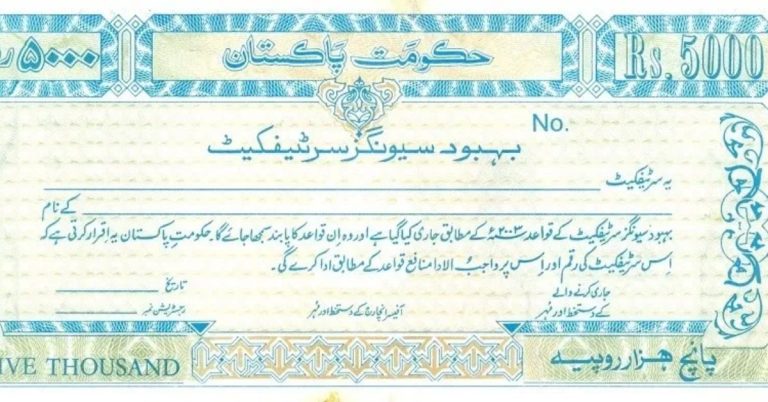 ۵۰۰۰ حکومت پاکستان Rs. 5000
No.
بہبود سیونگز سرٹیفکیٹ
یہ سرٹیفکیٹ
کے نام
بہبود سیونگز سرٹیفکیٹ کے قواعد ۲۰۰۳ء کے مطابق جاری کیا گیا ہے اور وہ ان قواعد کا پابند سمجھا جائے گا۔ حکومتِ پاکستان یہ اقرار کرتی ہے کہ
اس سرٹیفکیٹ کی رقم اور اس پر واجبُ الادا منافع قواعد کے مطابق ادا کرے گی۔
جاری کرنے والے تاریخ
کے دستخط اور مُہر آفیسر انچارج کے دستخط اور مُہر رجسٹریشن نمبر
THOUSAND پانچ ہزار روپیہ